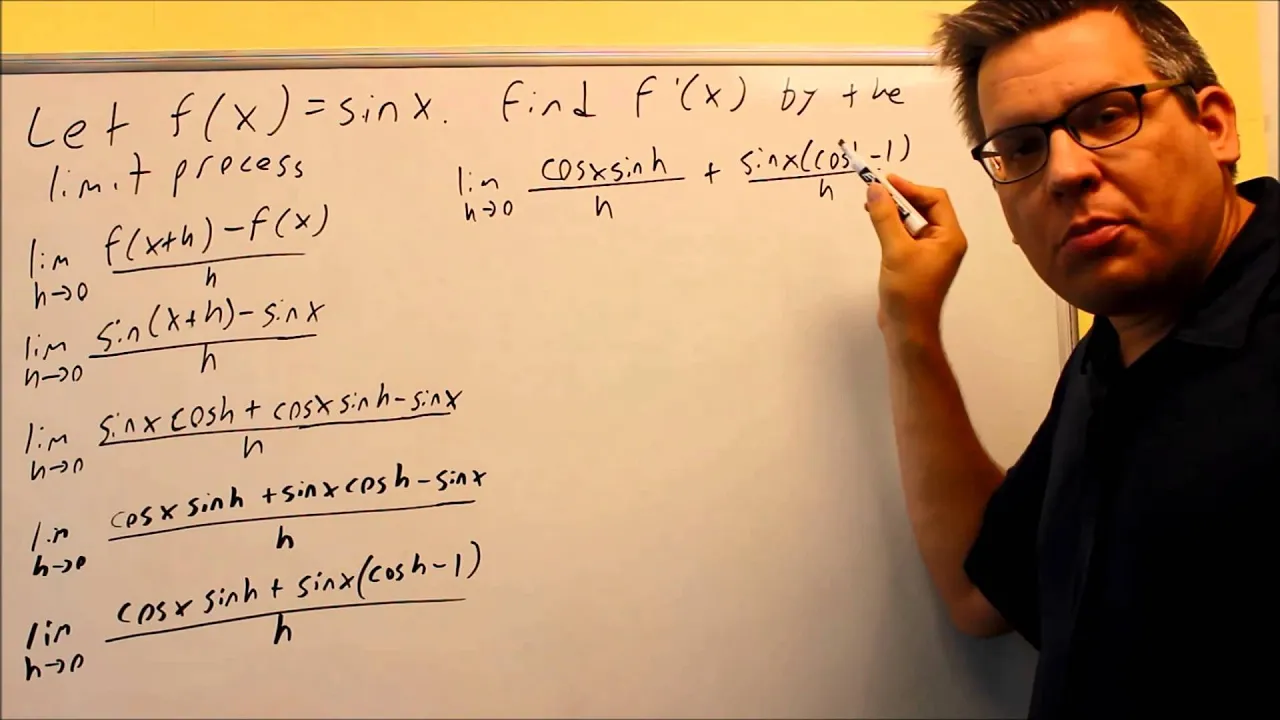 Let f(x) = sin x. Find f'(x) by the
limit process
lim h→0 f(x+h) - f(x) / h
lim h→0 sin(x+h) - sin x / h
lim h→0 sin x cos h + cos x sin h - sin x / h
lim h→0 cos x sin h + sin x cos h - sin x / h
lim h→0 cos x sin h + sin x (cos h - 1) / h
lim h→0 cos x sin h / h + sin x (cos - 1) / h